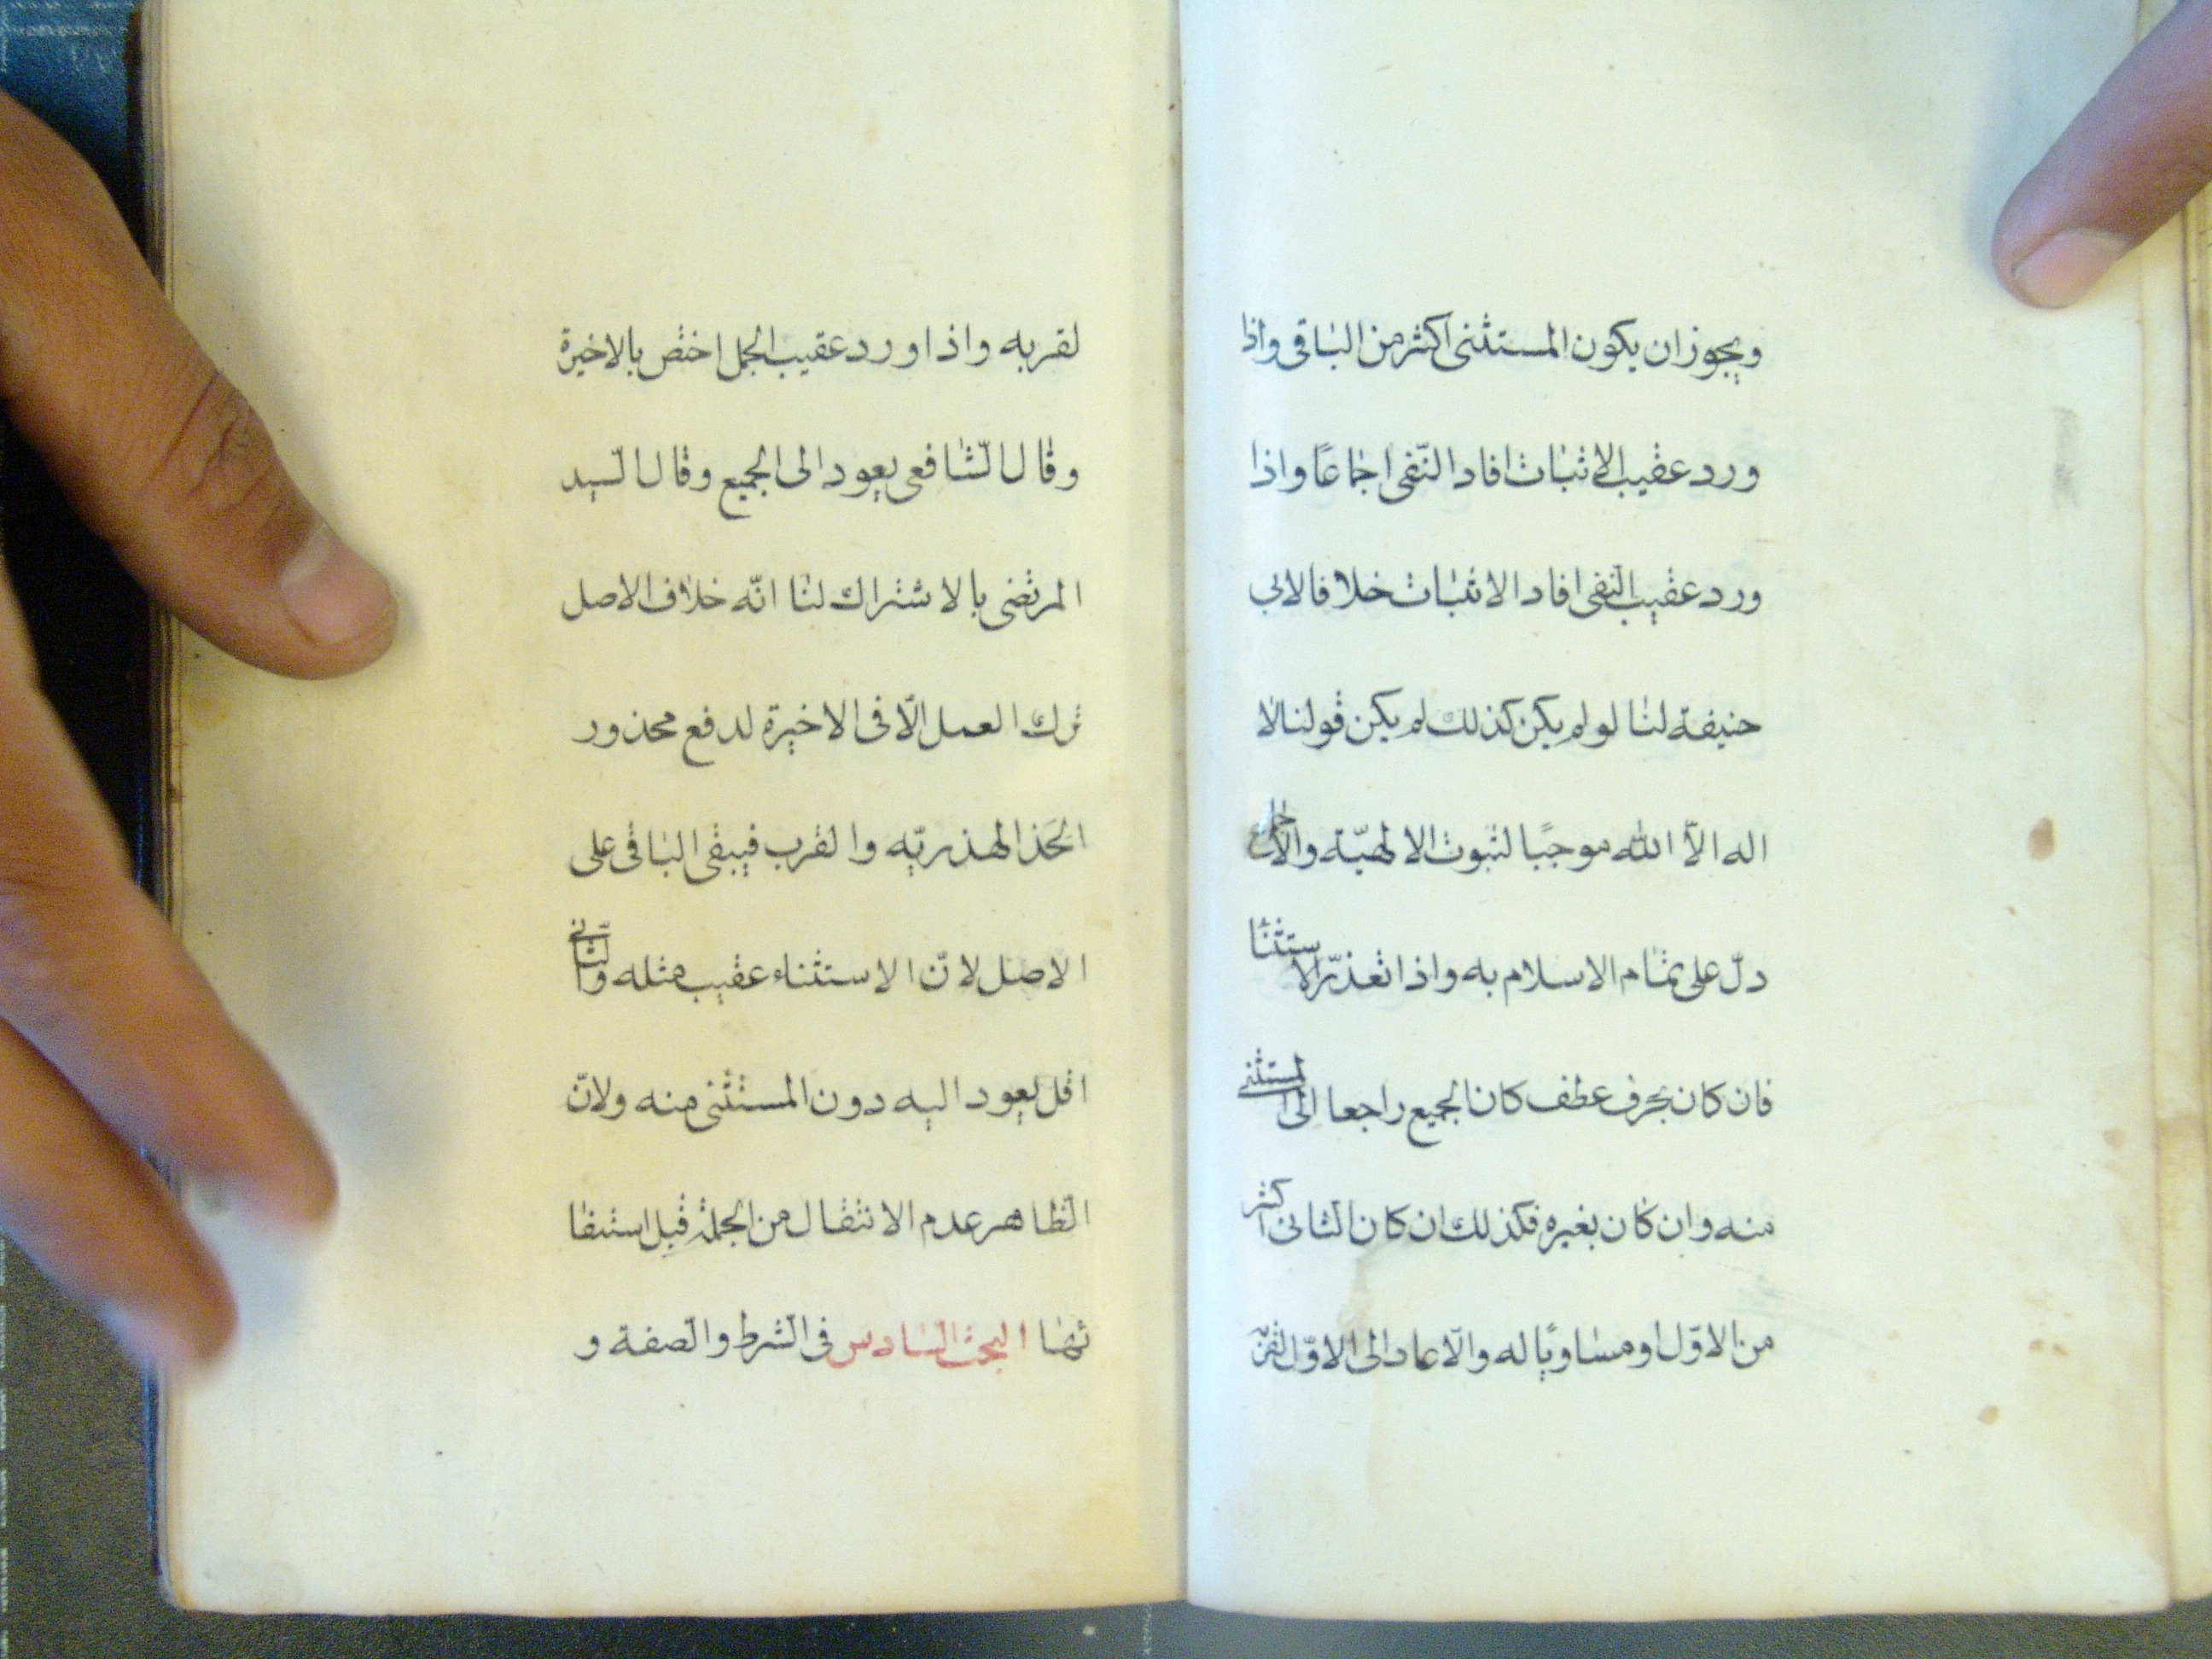 ويجوز ان يكون المستثنى اكثر من الباقى واذا
ورد عقيب الاثبات افاد النّفى اجماعًا واذا
ورد عقيب النفى افاد الاثبات خلافا لابى
حنيفة لنا لو لم يكن كذلك لم يكن قولنا لا
اله الاّ الله موجبًا لثبوت الالهيّة والاجماع
دلّ على تمام الاسلام به واذا تعذّر الاستثنا
فان كان بحرف عطف كان الجميع راجعا الى المستثنى
منه وان كان بغيره فكذلك ان كان الثانى اكثر
من الاوّل او مساويًا له والّا عاد الى الاوّل
لقربه واذا ورد عقيب الجمل اختص بالاخيرة
وقال الشّافعى يعود الى الجميع وقال السّيد
المرتضى بالاشتراك لنا انّه خلاف الاصل
ترك العمل الّا فى الاخيرة لدفع محذور
الهذريّه والقرب فيبقى الباقى على
الاصل لانّ الاستثناء عقيب مثله والثّانى
اقل يعود اليه دون المستثنى منه ولانّ
الظّاهر عدم الانتقال من الجملة قبل استيفا
ئها البحث السّادس فى الشّرط والصّفة و